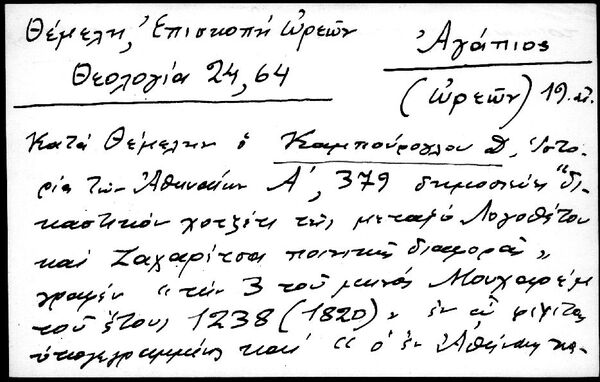 Θέμελη, Ἐπισκοπή Ὠρεῶν
Θεολογία 24, 64
Ἀγάπιος
(Ὠρεῶν) 19 αἰ.
Κατά Θέμελην ὁ Καμπούρογλου Δ, Ἱστο-
ρία τῶν Ἀθηναίων Α΄, 379 δημοσιεύει "δι-
καστικόν χοτζέτι τῆς μεταξύ Λογοθέτου
καί Ζαχαρίτσα ποινικῆς διαφορᾶς"
γραφέν "τήν 3 τοῦ μηνός Μουχαρέμ
τοῦ ἔτους 1238 (1820)" ἐν ᾧ φέρεται
ὑπογεγραμμένος καί "ὁ ἐν Ἀθήναις